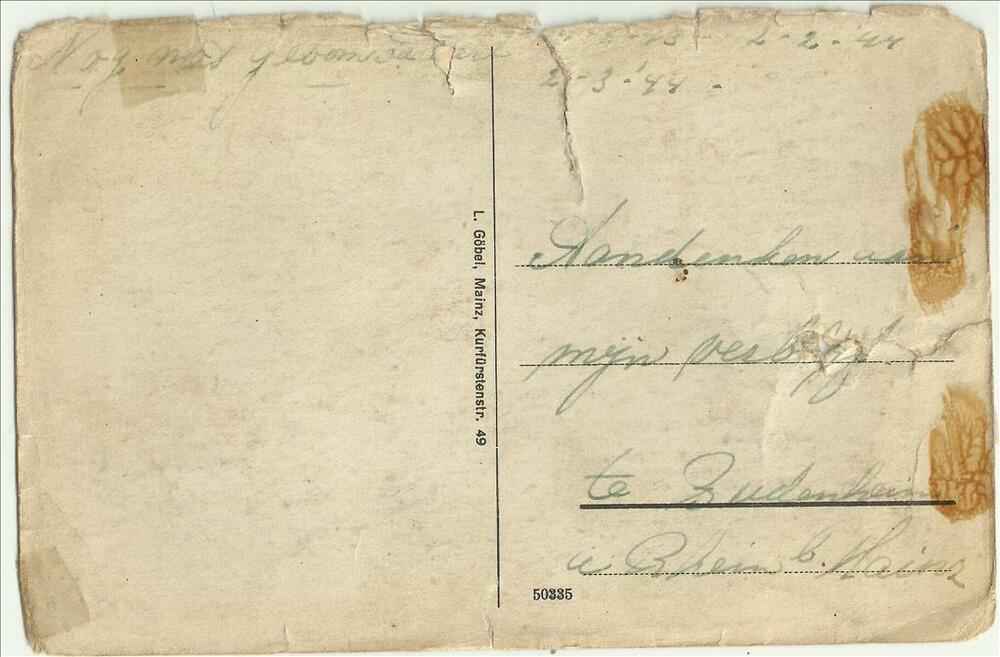 Nog nos 2-2-44
2-3-44 -
L. Göbel, Mainz, Kurfürstenstr. 49
Aandenken aan
mijn verblijf
te Budenheim
a Rhein b. Mainz
50335